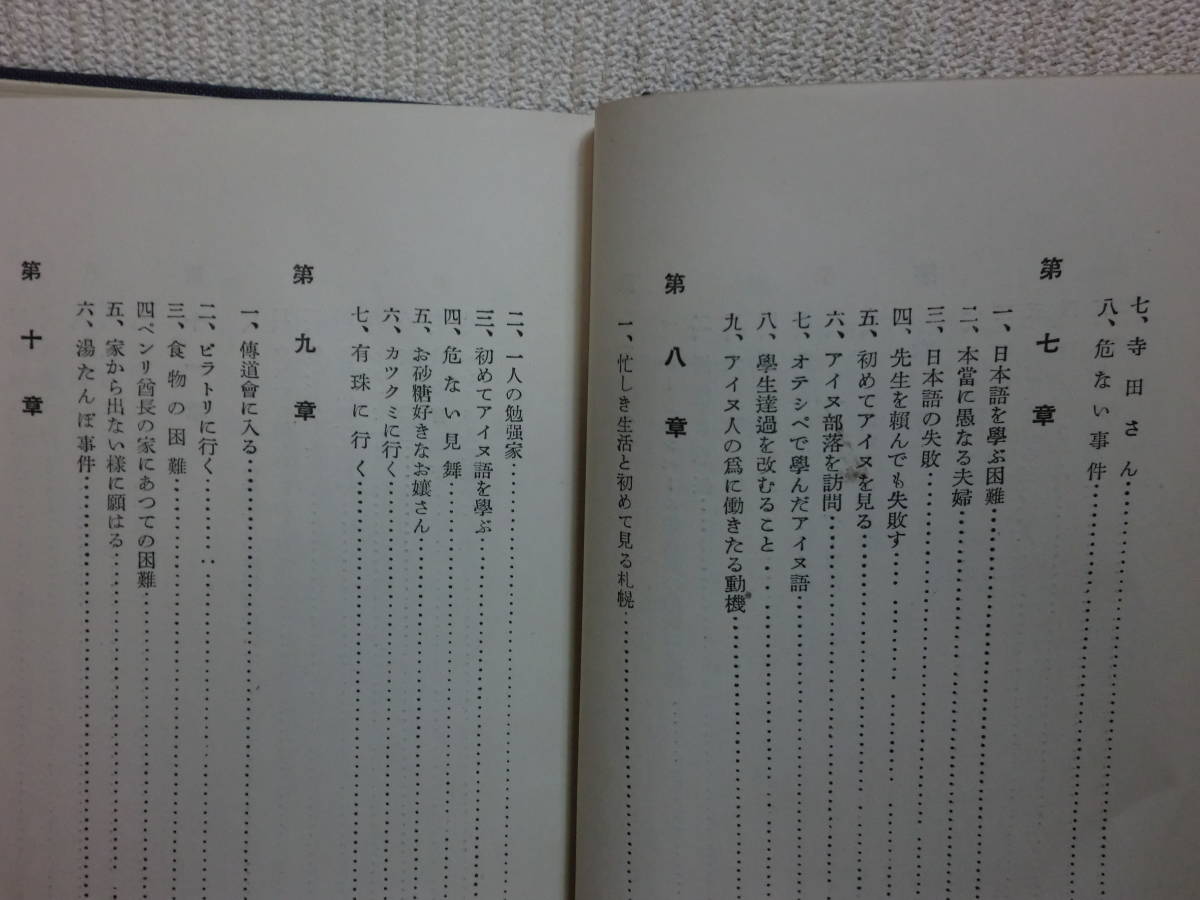 七、寺田さん
八、危ない事件
第七章
一、日本語を學ぶ困難
二、本當に愚なる夫婦
三、日本語の失敗
四、先生を頼んでも失敗す
五、初めてアイヌを見る
六、アイヌ部落を訪問
七、オテシベで學んだアイヌ語
八、學生達過を改むること
九、アイヌ人の爲に働きたる動機
第八章
一、忙しき生活と初めて見る札幌
二、一人の勉强家
三、初めてアイヌ語を學ぶ
四、危ない見舞
五、お砂糖好きなお孃さん
六、カツクミに行く
七、有珠に行く
第九章
一、傳道會に入る
二、ピラトリに行く
三、食物の困難
四ペンリ酋長の家にあつての困難
五、家から出ない樣に願はる
六、湯たんぽ事件
第十章